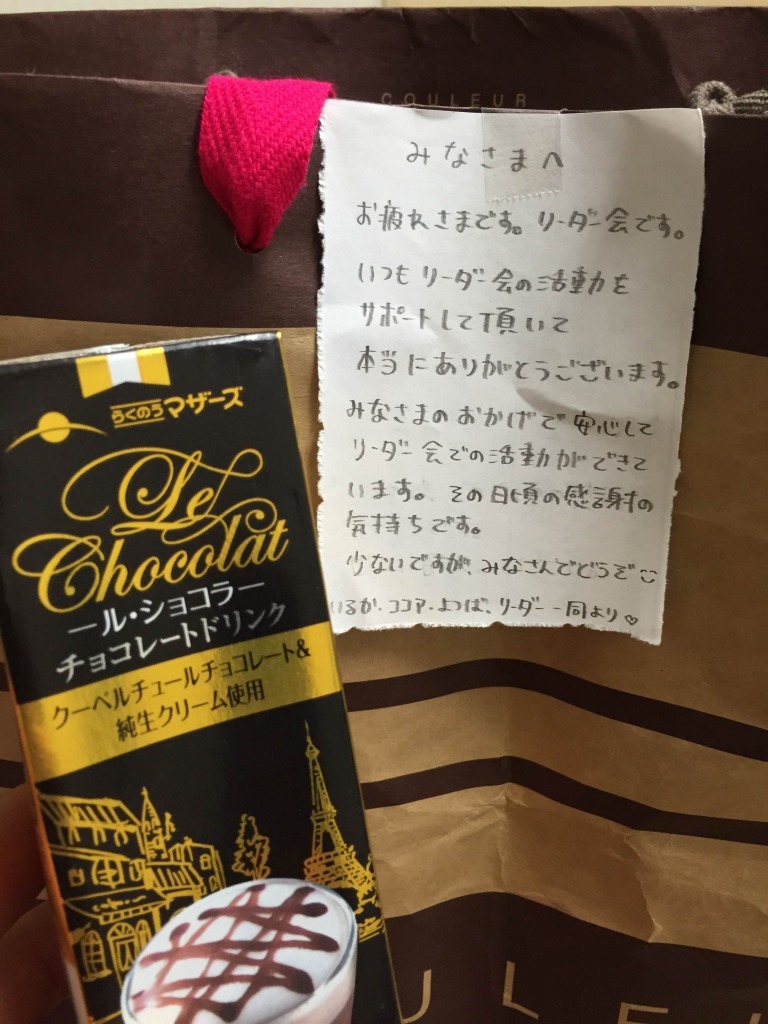 COULEUR
みなさまへ
お疲れさまです。リーダー会です。
いつもリーダー会の活動を
サポートして頂いて
本当にありがとうございます。
みなさまのおかげで安心して
リーダー会での活動ができて
います。その日頃の感謝の
気持ちです。
少ないですが、みなさんでどうぞ
いるか、ココア、よつば、リーダー一同より♡
らくのうマザーズ
Le
Chocolat
ール・ショコラー
チョコレートドリンク
クーベルチュールチョコレート&
純生クリーム使用
ULEU